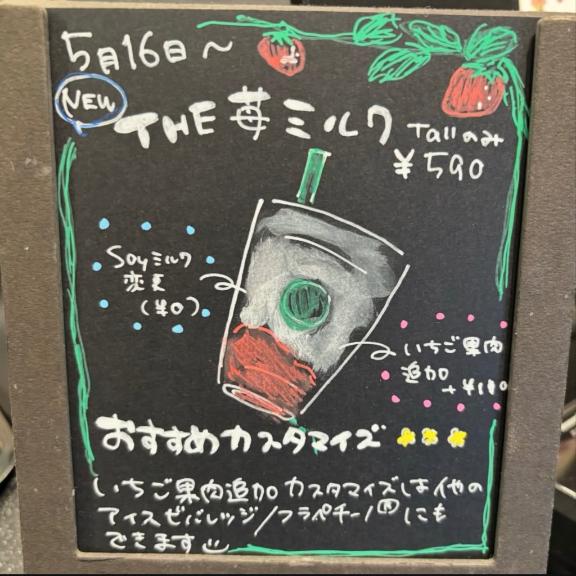 5月16日～
NEW
THE苺ミルク
Tallのみ
¥590
Soyミルク
変更
(¥0)
いちご果肉
追加
+¥100
おすすめカスタマイズ
いちご果肉追加カスタマイズは他の
アイスビバレッジ/フラペチーノ®にも
できます